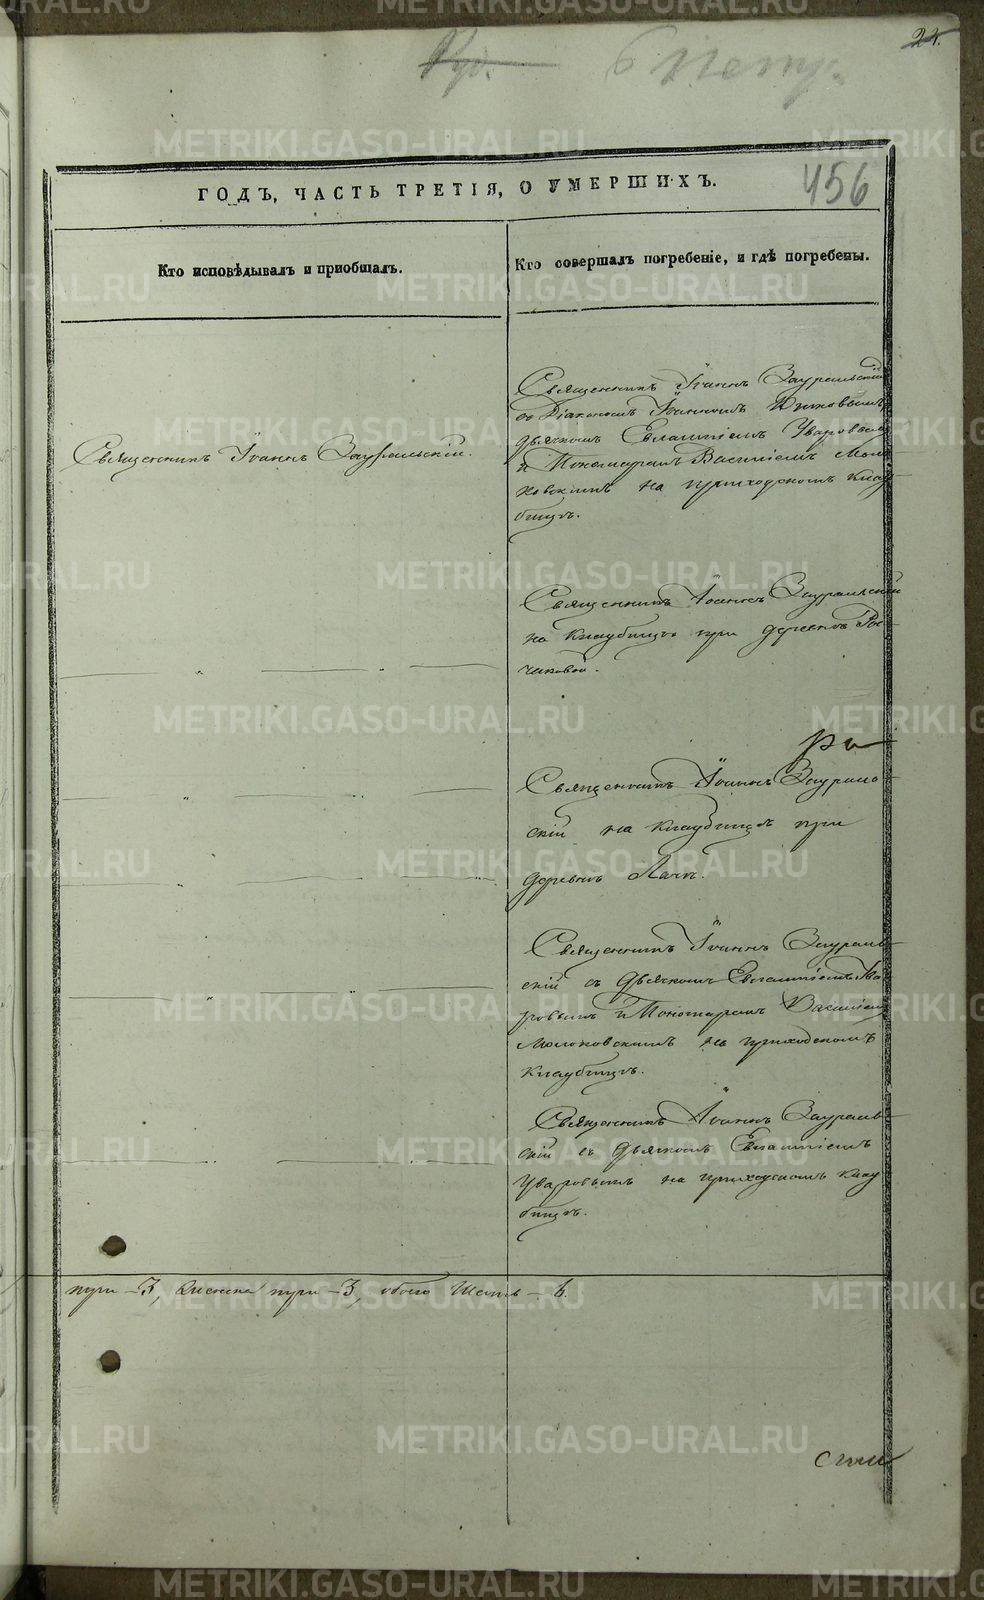 24.
6 Петр.
456
ГОДЪ, ЧАСТЬ ТРЕТІЯ, О УМЕРШИХЪ.
Кто исповѣдывалъ и пріобщалъ.
Кто совершалъ погребеніе, и гдѣ погребены.
Священникъ Іоаннъ Зауральскій.
Священникъ Іоаннъ Зауральскій
съ Діакономъ Іоанномъ
дьячкомъ Евлампіемъ Уваровымъ
и Пономаремъ Василіемъ Моло-
ковскимъ на приходскомъ клад-
бищѣ.
Священникъ Іоаннъ Зауральскій
на кладбищѣ при деревнѣ
Священникъ Іоаннъ Зураль-
скій на кладбищѣ при
деревнѣ
Священникъ Іоаннъ Зураль-
скій съ дьячкомъ Евлампіемъ Ува-
ровымъ и Пономаремъ Василіемъ
Молоковскимъ на приходскомъ
кладбищѣ.
Священникъ Іоаннъ Зураль-
скій съ дьячкомъ Евлампіемъ
Уваровымъ на приходскомъ клад
бищѣ.
три – 3, женска три – 3, обоего шесть – 6.
METRIKI.GASO-URAL.RU